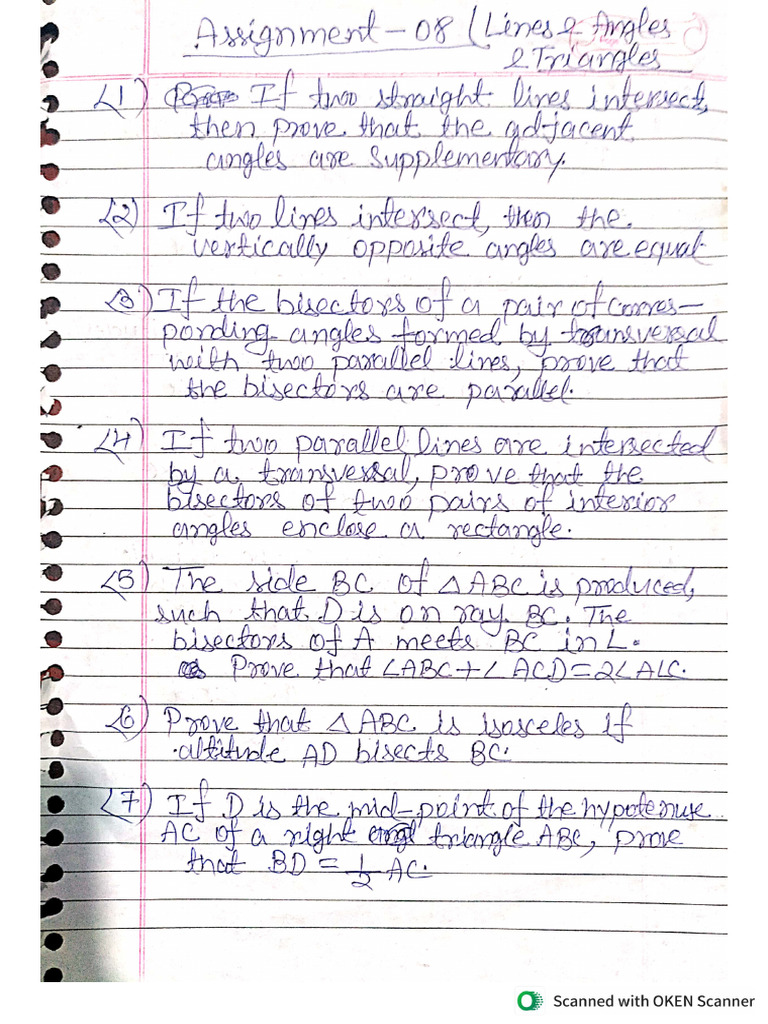 Assignment - 08 (Lines & Angles
& Triangles
(1) If two straight lines intersect,
then prove that the adjacent
angles are supplementary.
(2) If two lines intersect, then the
vertically opposite angles are equal
(3) If the bisectors of a pair of corres-
ponding angles formed by transversal
with two parallel lines, prove that
the bisectors are parallel.
(4) If two parallel lines are intersected
by a transversal, prove that the
bisectors of two pairs of interior
angles enclose a rectangle.
(5) The side BC of △ABC is produced,
such that D is on ray BC. The
bisectors of A meets BC in L.
Prove that ∠ABC + ∠ACD = 2∠ALC.
(6) Prove that △ABC is isosceles if
altitude AD bisects BC.
(7) If D is the mid-point of the hypotenuse
AC of a right triangle ABC, prove
that BD = 1/2 AC.
Scanned with OKEN Scanner